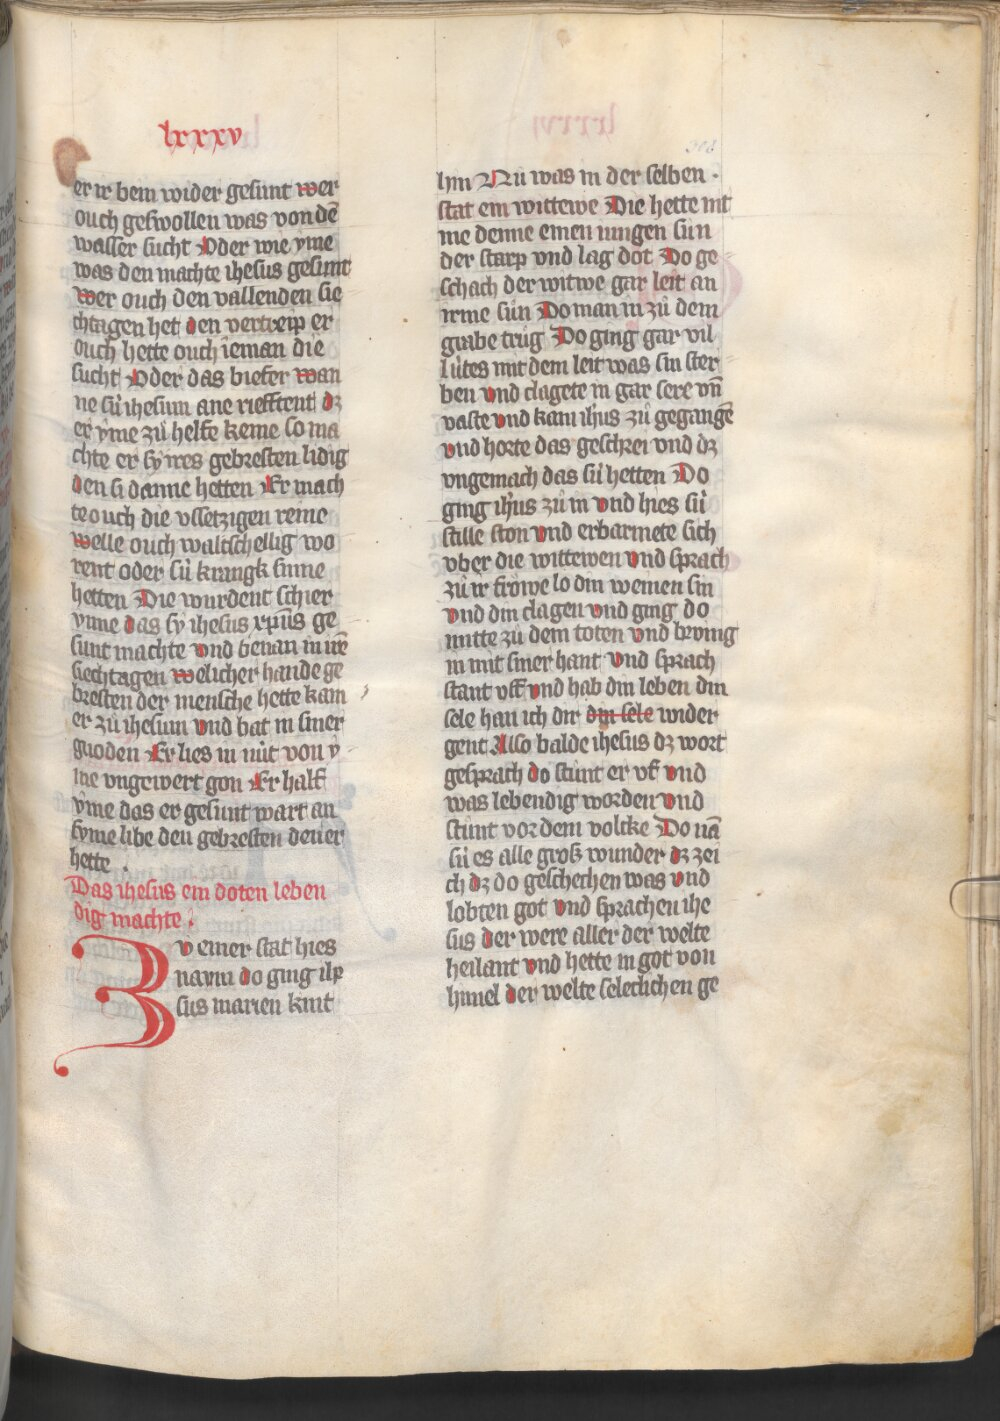 lxxxv
er ir bein wider gesunt wer
ouch geswollen was von dē
wasser sucht Oder wie yme
was den machte ihesus gesunt
Wer ouch den vallenden sie
chtagen het den vertreip er
ouch hette ouch ieman die
sucht Oder das bieber wan
ne sü ihesum ane riefftent dz
er yme zů helfe keme so ma
chte er sy irres gebresten lidig
den si danne hetten Er mach
te ouch die vssetzigen reine
welle ouch waltschellig wo
rent oder sü krangk sinne
hetten Die wurdent schier
ynne das sy ihesus xpūs ge
sunt machte vnd benan in irē
siechtagen welicher hande ge
bresten der mensche hette kam
er zů ihesum vnd bat in siner
gnoden Er lies in nüt von y
me vngewert gon Er half
yme das er gesunt wart an
syme libe den gebresten den er
hette
Das ihesus ein doten leben
dig machte
Zv einer stat hies
naym do ging ihe
sus marien kint
hin Nü was in der selben
stat ein wittewe Die hette nit
me denne einen iungen sün
der starp vnd lag dot Do ge
schach der witwe gar leit an
irme sün Do man in zů dem
grabe trůg Do ging gar vil
lütes mit dem leit was sin ster
ben vnd clagete in gar sere vn̄
vaste vnd kam ih̄us zů gegangē
vnd horte das geschrei vnd dz
vngemach das sü hetten Do
ging ih̄us zů in vnd hies sü
stille ston vnd erbarmete sich
vber die wittewen vnd sprach
zů ir frowe lo din weinen sin
vnd din clagen vnd ging do
mitte zů dem toten vnd bving
in mit siner hant vnd sprach
stant vff vnd hab din leben din
sele han ich dir din sele wider
gent Also balde ihesus dz wort
gesprach do stůnt er vf vnd
was lebendig worden vnd
stůnt vor dem volcke Do nā
sü es alle groß wunder dz zei
ch dz do geschechen was vnd
lobten got vnd sprachen ihe
sus der were aller der welte
heilant vnd hette in got von
himel der welte seleclichen ge